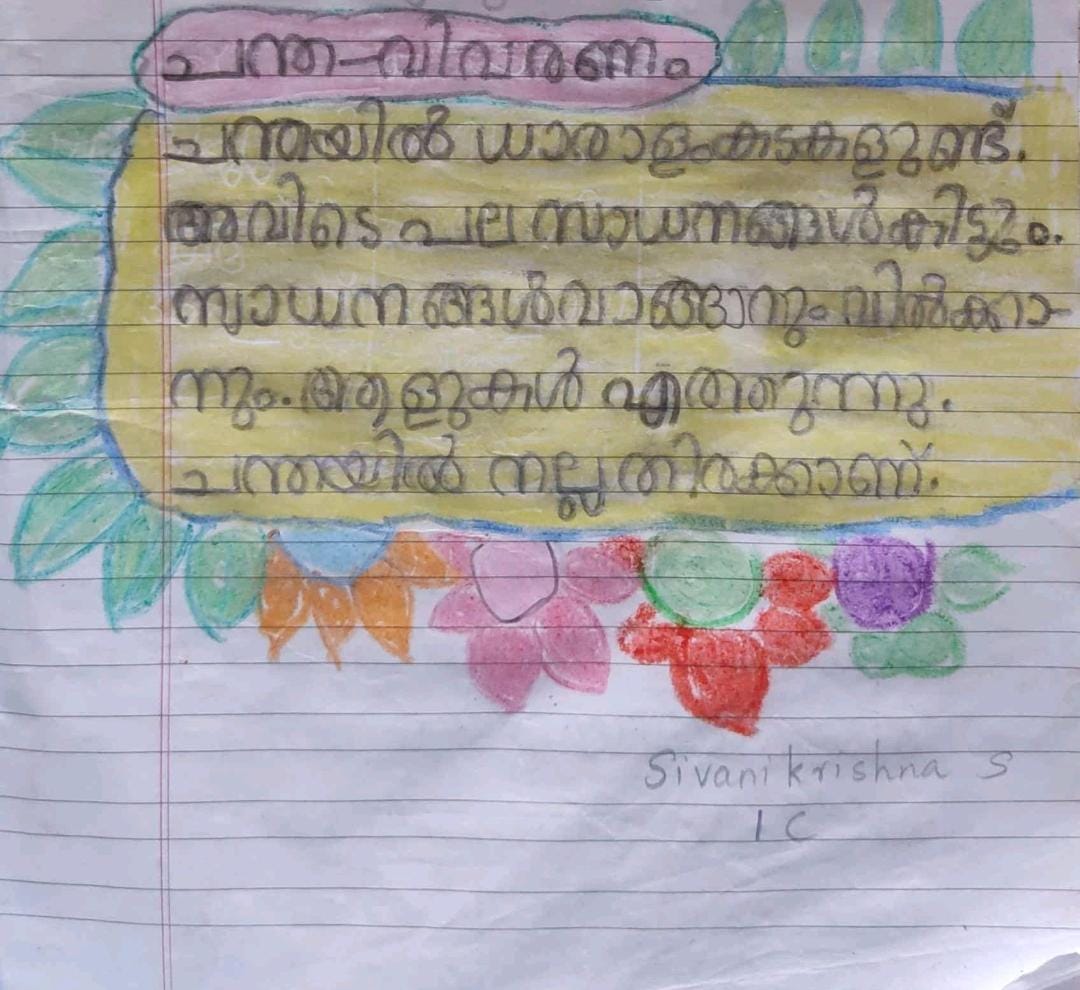 ചന്ത-വിവരണം
ചന്തയിൽ ധാരാളംകടകളുണ്ട്.
അവിടെ പല സാധനങ്ങൾകിട്ടും.
സാധനങ്ങൾവാങ്ങാനും വിൽക്കാ-
നും. ആളുകൾ എത്തുന്നു.
ചന്തയിൽ നല്ലതിരക്കാണ്.
Sivanikrishna S
1 C